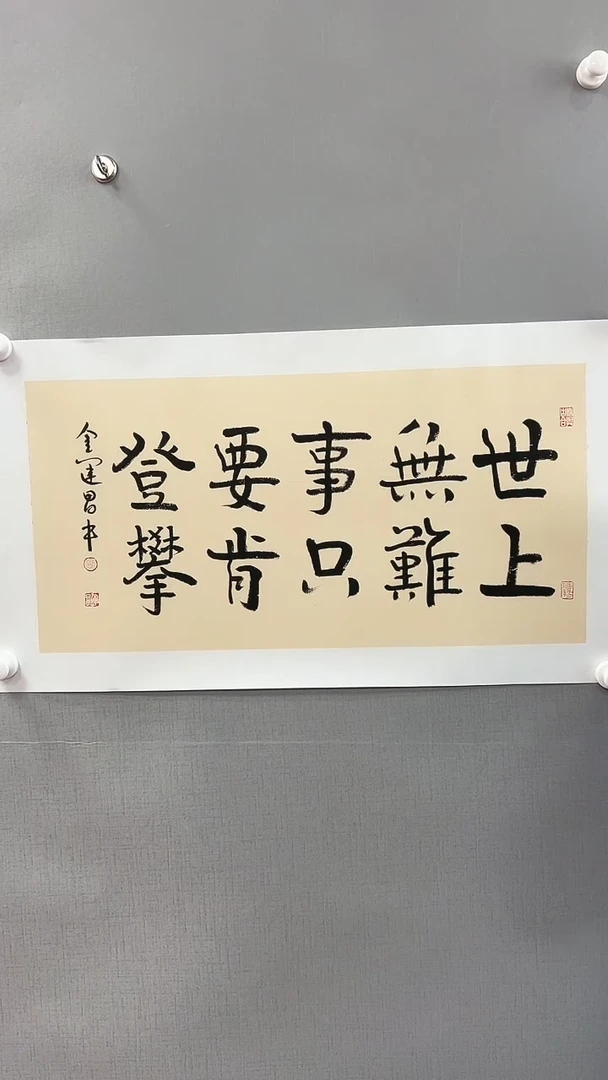 世上
無難
事只
要肯
登攀
金建昌书